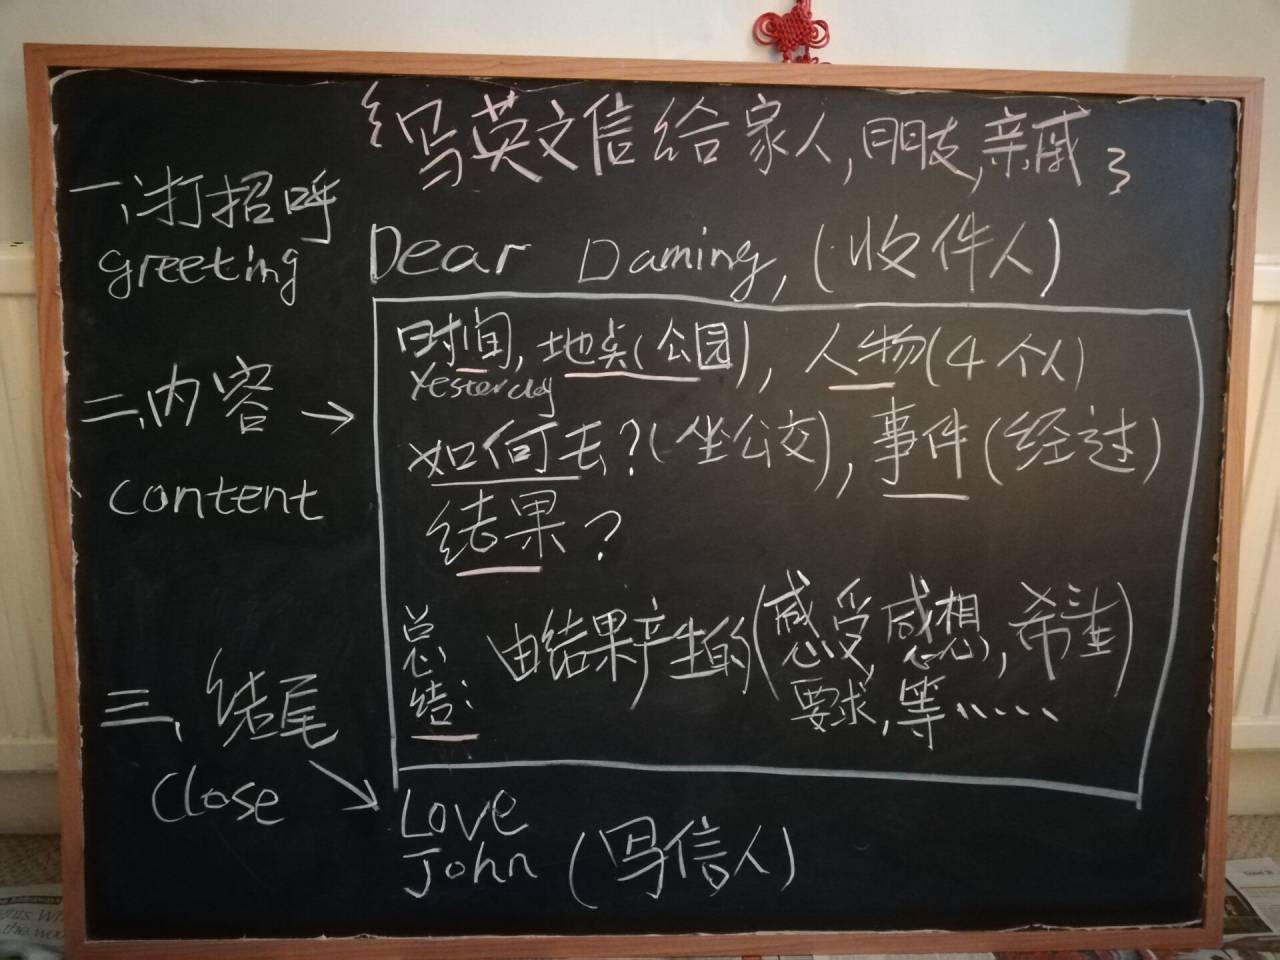 写英文信给家人,朋友,亲戚
一、打招呼
greeting
Dear Daming, (收件人)
二、内容 →
content
时间, 地点(公园), 人物(4个人)
Yesterday
如何去?(坐公交), 事件(经过)
结果?
总结: 由结果产生的(感受, 感想, 希望)
要求, 等……
三、结尾
Close
Love
John (写信人)